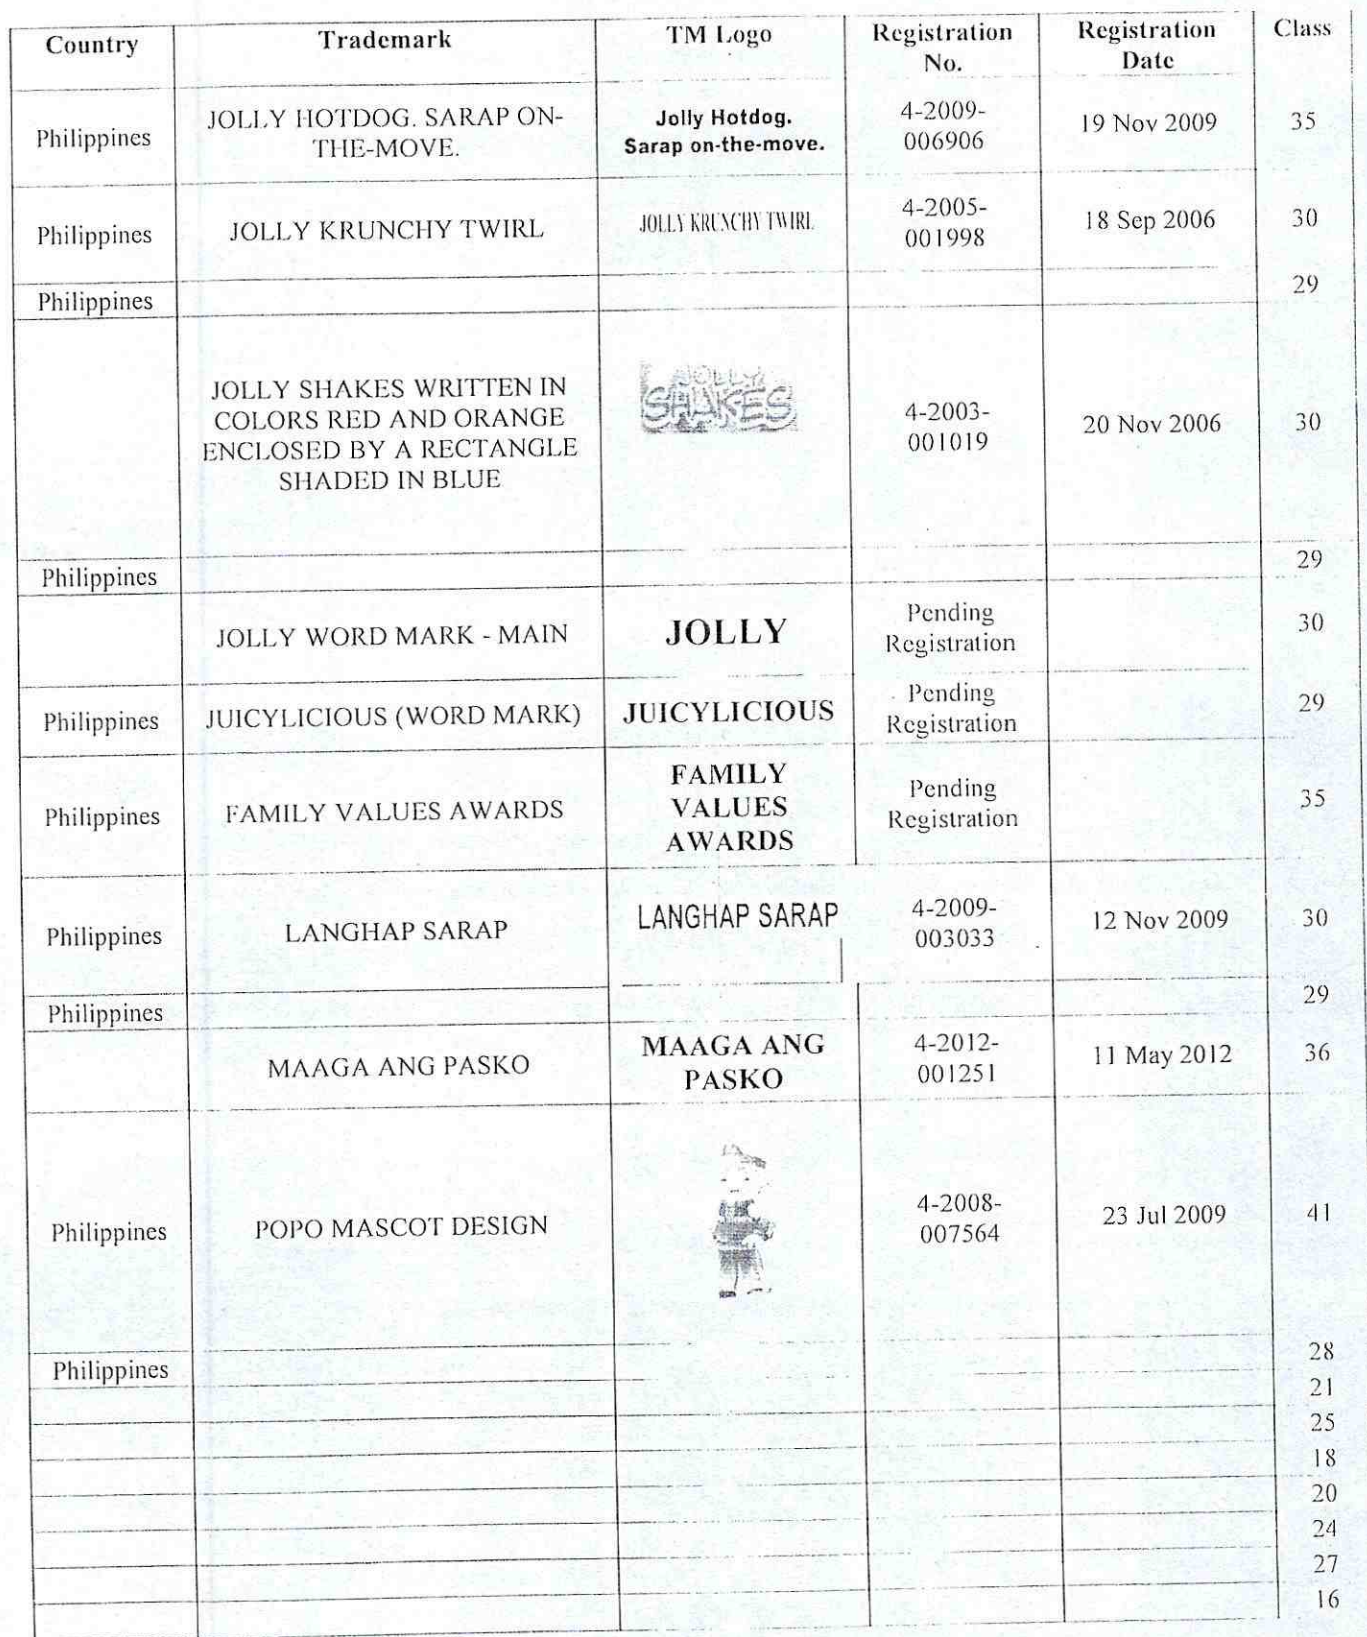 Country Trademark TM Logo Registration No. Registration Date Class
Philippines JOLLY HOTDOG. SARAP ON-
THE-MOVE. Jolly Hotdog.
Sarap on-the-move. 4-2009-
006906 19 Nov 2009 35
Philippines JOLLY KRUNCHY TWIRL JOLLY KRUNCHY TWIRL 4-2005-
001998 18 Sep 2006 30
Philippines 29
JOLLY SHAKES WRITTEN IN
COLORS RED AND ORANGE
ENCLOSED BY A RECTANGLE
SHADED IN BLUE
JOLLY
SHAKES
4-2003-
001019 20 Nov 2006 30
Philippines 29
JOLLY WORD MARK - MAIN JOLLY Pending
Registration 30
Philippines JUICYLICIOUS (WORD MARK) JUICYLICIOUS Pending
Registration 29
Philippines FAMILY VALUES AWARDS FAMILY
VALUES
AWARDS Pending
Registration 35
Philippines LANGHAP SARAP LANGHAP SARAP 4-2009-
003033 12 Nov 2009 30
Philippines 29
MAAGA ANG PASKO MAAGA ANG
PASKO 4-2012-
001251 11 May 2012 36
Philippines POPO MASCOT DESIGN 4-2008-
007564 23 Jul 2009 41
Philippines 28
21
25
18
20
24
27
16